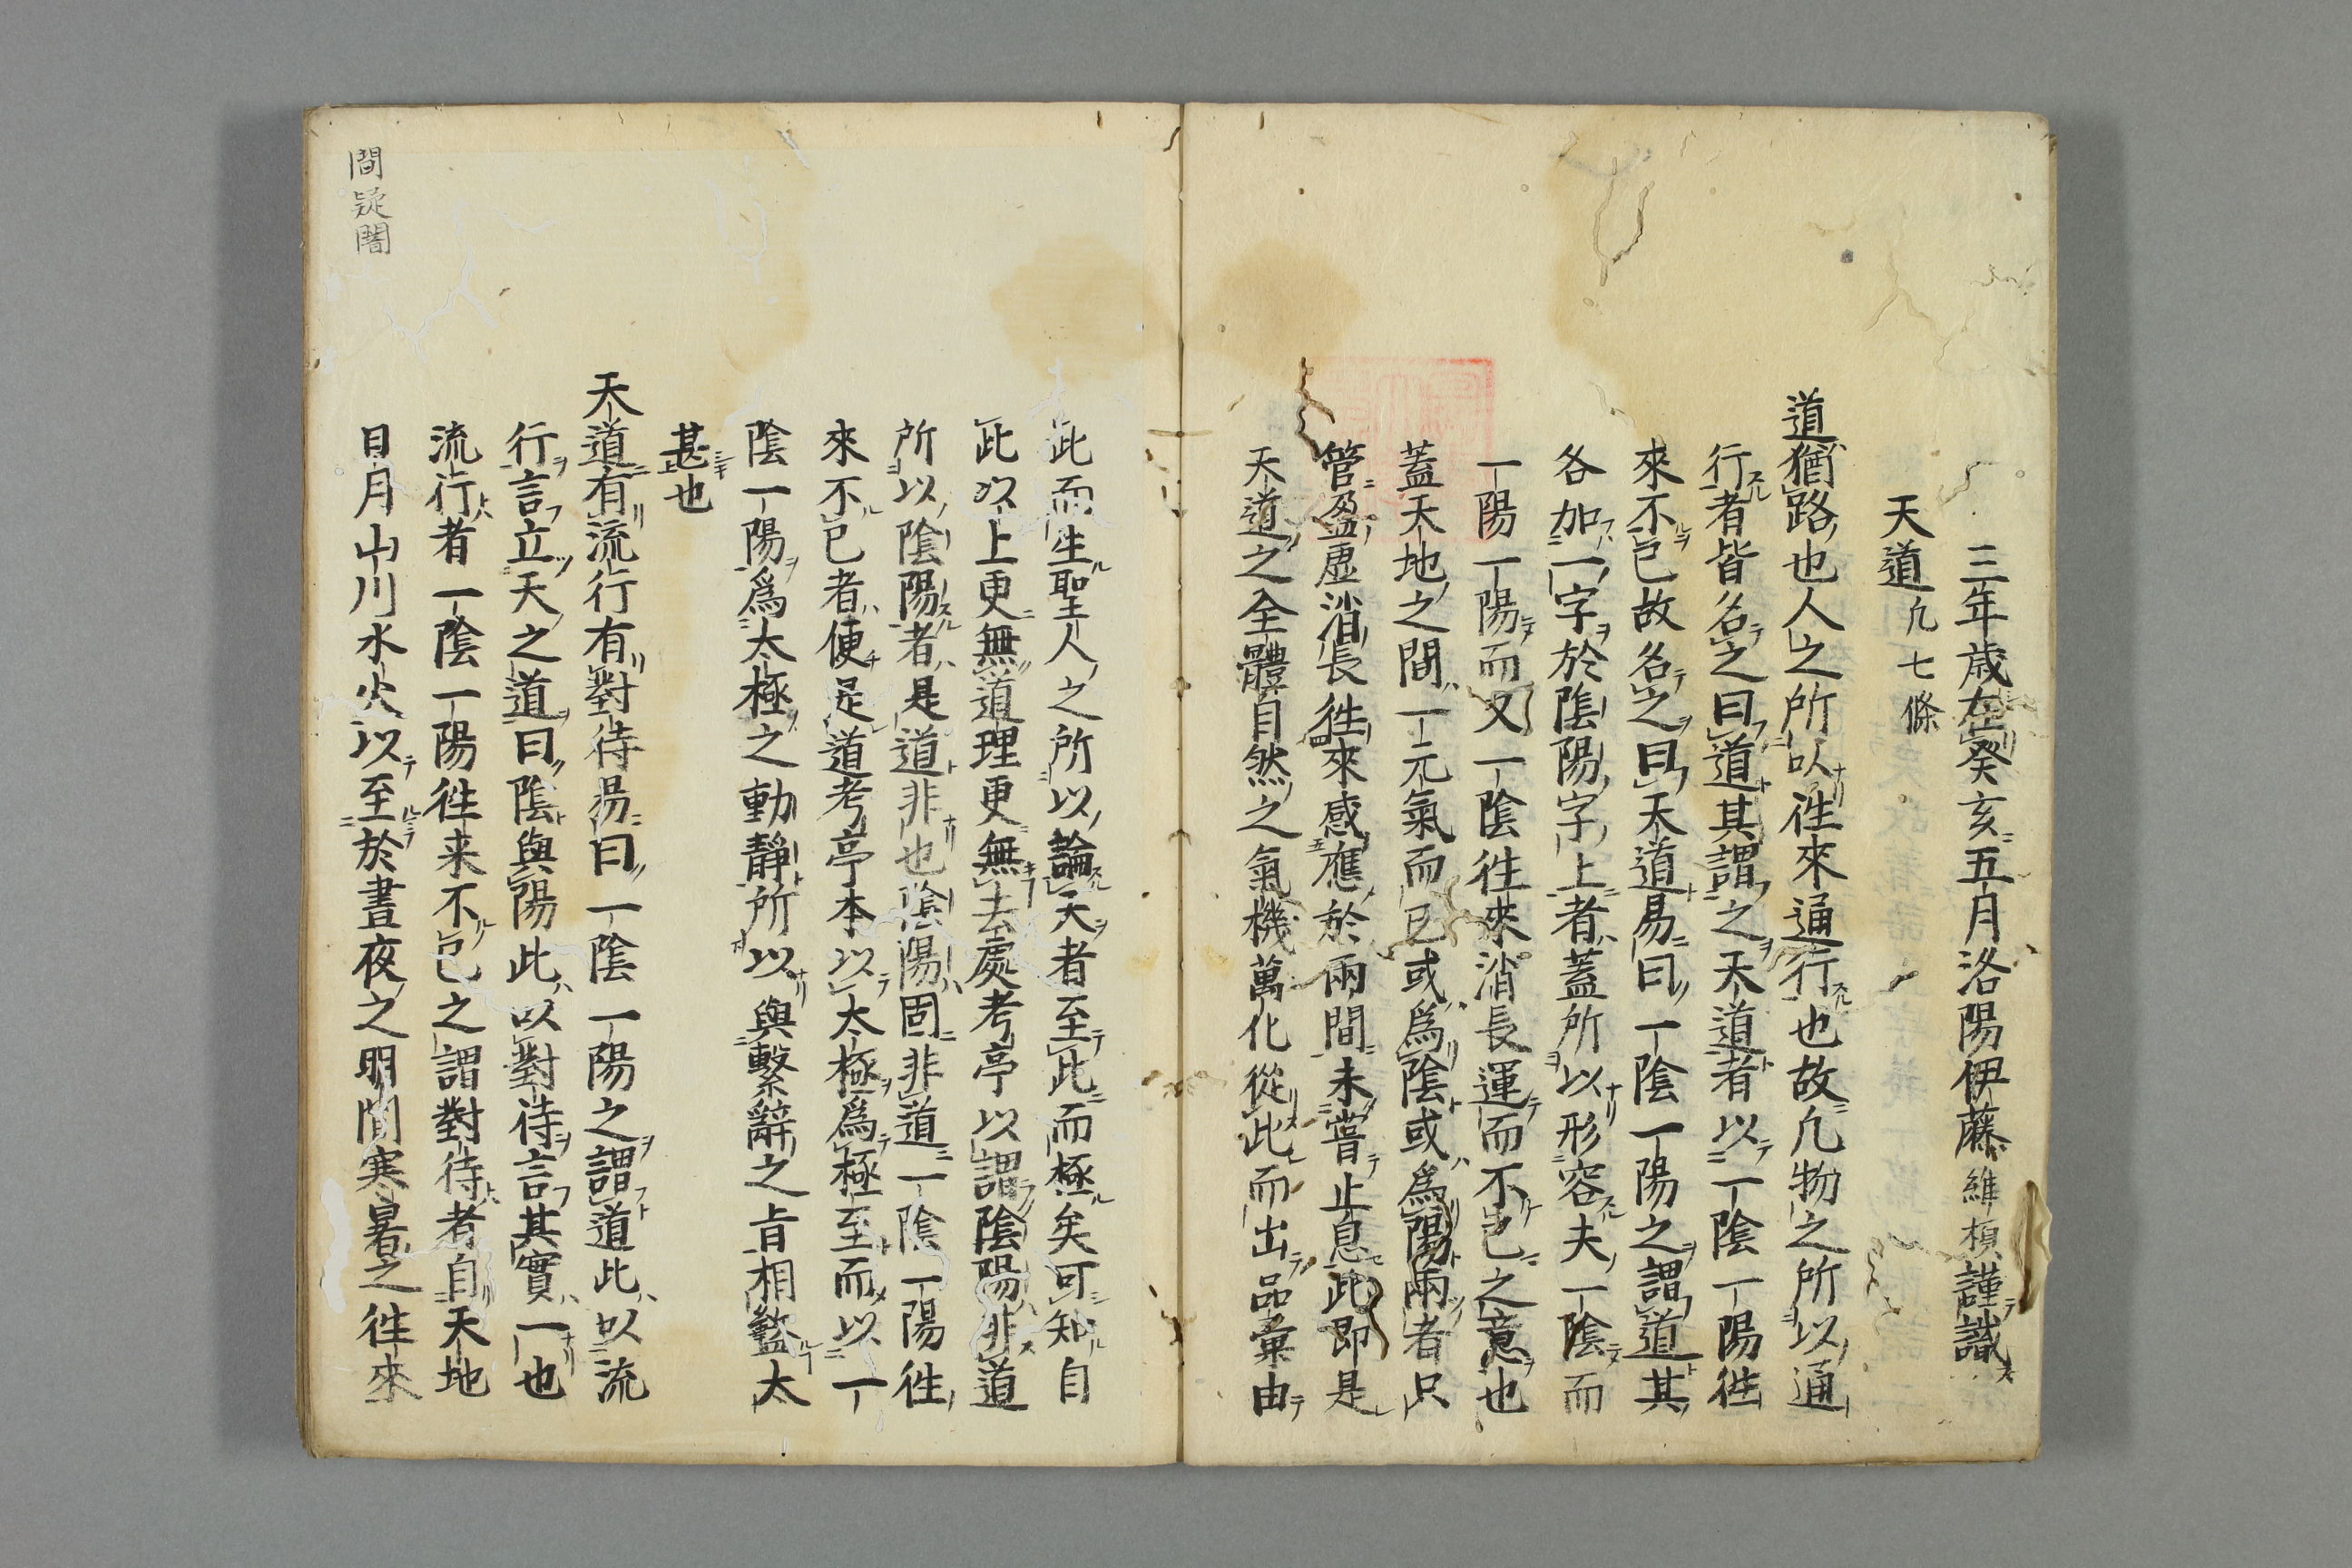 三年歳在癸亥五月洛陽伊藤維楨謹識
天道凢七條
道猶路也人之所以徃來通行也故凢物之所以通
行者皆名之曰道其謂之天道者以一陰一陽徃
來不已故名之曰天道易曰一陰一陽之謂道其
各加一字於陰陽字上者蓋所以形容夫一陰而
一陽一陽而又一陰徃來消長運而不已之意也
蓋天地之間一元氣而已或爲陰或爲陽兩者只
管盈虛消長徃來感應於兩間未嘗止息此即是
天道之全體自然之氣機萬化從此而出品彙由
此而生聖人之所以論天者至此而極矣可知自
此以上更無道理更無去處考亭以謂陰陽非道
所以陰陽者是道非也陰陽固非道一陰一陽徃
來不已者便是道考亭本以太極爲極至而以一
陰一陽爲太極之動靜所以與繫辭之旨相盭太
甚也
天道有流行有對待易曰一陰一陽之謂道此以流
行言立天之道曰陰與陽此以對待言其實一也
流行者一陰一陽徃来不已之謂對待者自天地
日月山川水火以至於晝夜之明間寒暑之徃來
間疑闇